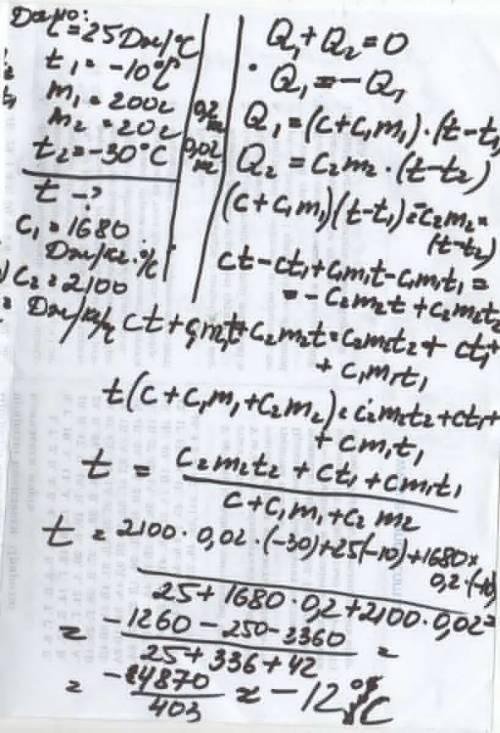 Дано:
C=25Дж/°C
t₁=-10°C
m₁=200г 0,2 кг
m₂=20г 0,02 кг
t₂=-30°C
t-?
C₁=1680
Дж/кг·°C
C₂=2100
Дж/кг
Q₁+Q₂=0
Q₁=-Q₁
Q₁=(C+C₁m₁)·(t-t₁)
Q₂=C₂m₂·(t-t₂)
(C+C₁m₁)(t-t₁)=-C₂m₂·
(t-t₂)
Ct-Ct₁+C₁m₁t-C₁m₁t₁=
=-C₂m₂t+C₂m₂t₂
Ct+C₁m₁t+C₂m₂t=C₂m₂t₂+Ct₁+
+C₁m₁t₁
t(C+C₁m₁+C₂m₂)=C₂m₂t₂+Ct₁+
+Cm₁t₁
t = C₂m₂t₂+Ct₁+Cm₁t₁
C+C₁m₁+C₂m₂
t=2100·0,02·(-30)+25(-10)+1680×
0,2·(-10)
25+1680·0,2+2100·0,02=
= -1260-250-3360 =
25+336+42
= -4870 ≈ -12°C
403